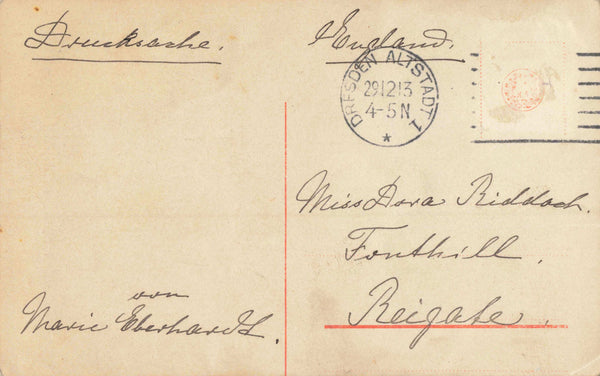 Drucksache.
England.
DRESDEN ALTSTADT 1
29.12.13
4-5N
*
Miss Dora Riddoch.
Fonthill.
Reigate.
von
Marie Eberhardt.